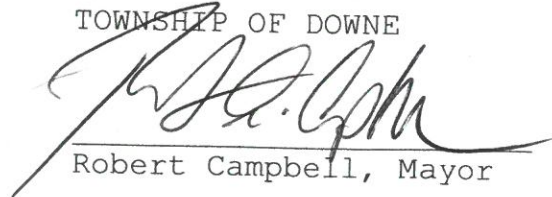 TOWNSHIP OF DOWNE
Robert Campbell, Mayor